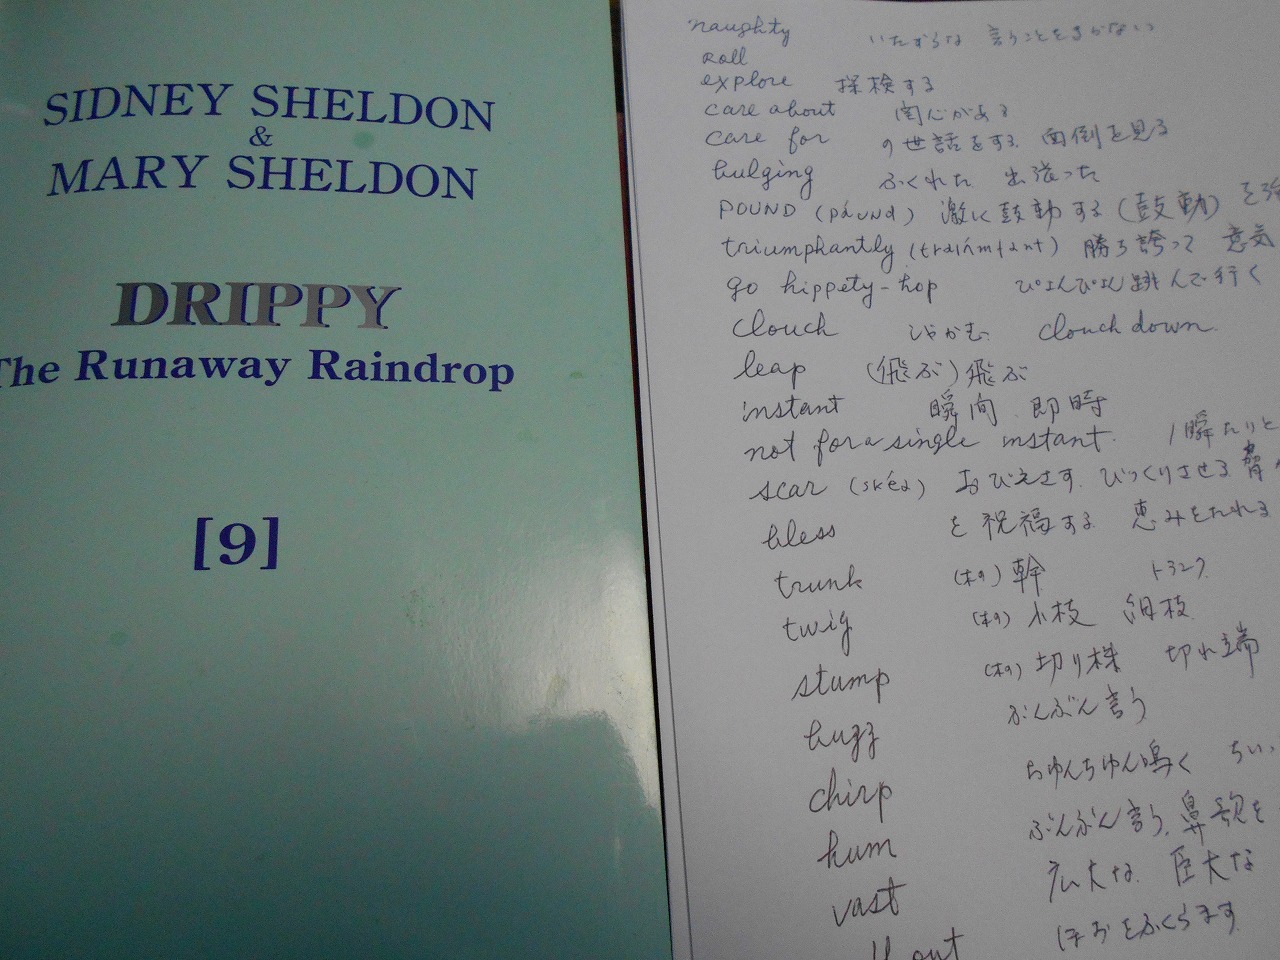 SIDNEY SHELDON
&
MARY SHELDON
DRIPPY
The Runaway Raindrop
[9]
naughty いたずらな 言うことをきかない
roll
explore 探検する
care about 関心がある
care for の世話をする 面倒を見る
bulging ふくれた 出張った
POUND (páund) 激しく鼓動する (鼓動) を
triumphantly 勝ち誇って 意気
go hippety-hop ぴょんぴょん跳んで行く
clouch しゃがむ clouch down
leap (飛ぶ) 飛ぶ
instant 瞬間 即時
not for a single instant 1瞬たりと
scar (skéə) おびえさす びっくりさせる 脅
bless を祝福する 恵みをたれる
trunk (木の) 幹 トランク
twig (木の) 小枝 細枝
stump (木の) 切り株 切れ端
buzz ぶんぶん言う
chirp ちゅんちゅん鳴く ちい
hum ぶんぶん言う、鼻歌を
vast 広大な 巨大な
out ほおをふくらます